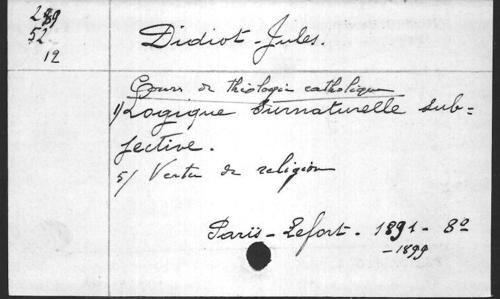 289
52
12
Didiot - Jules.
Cours de théologie catholique
1) Logique surnaturelle sub=
jective.
5/ Vertu de religion
Paris - Lefort - 1891 - 8º
- 1899